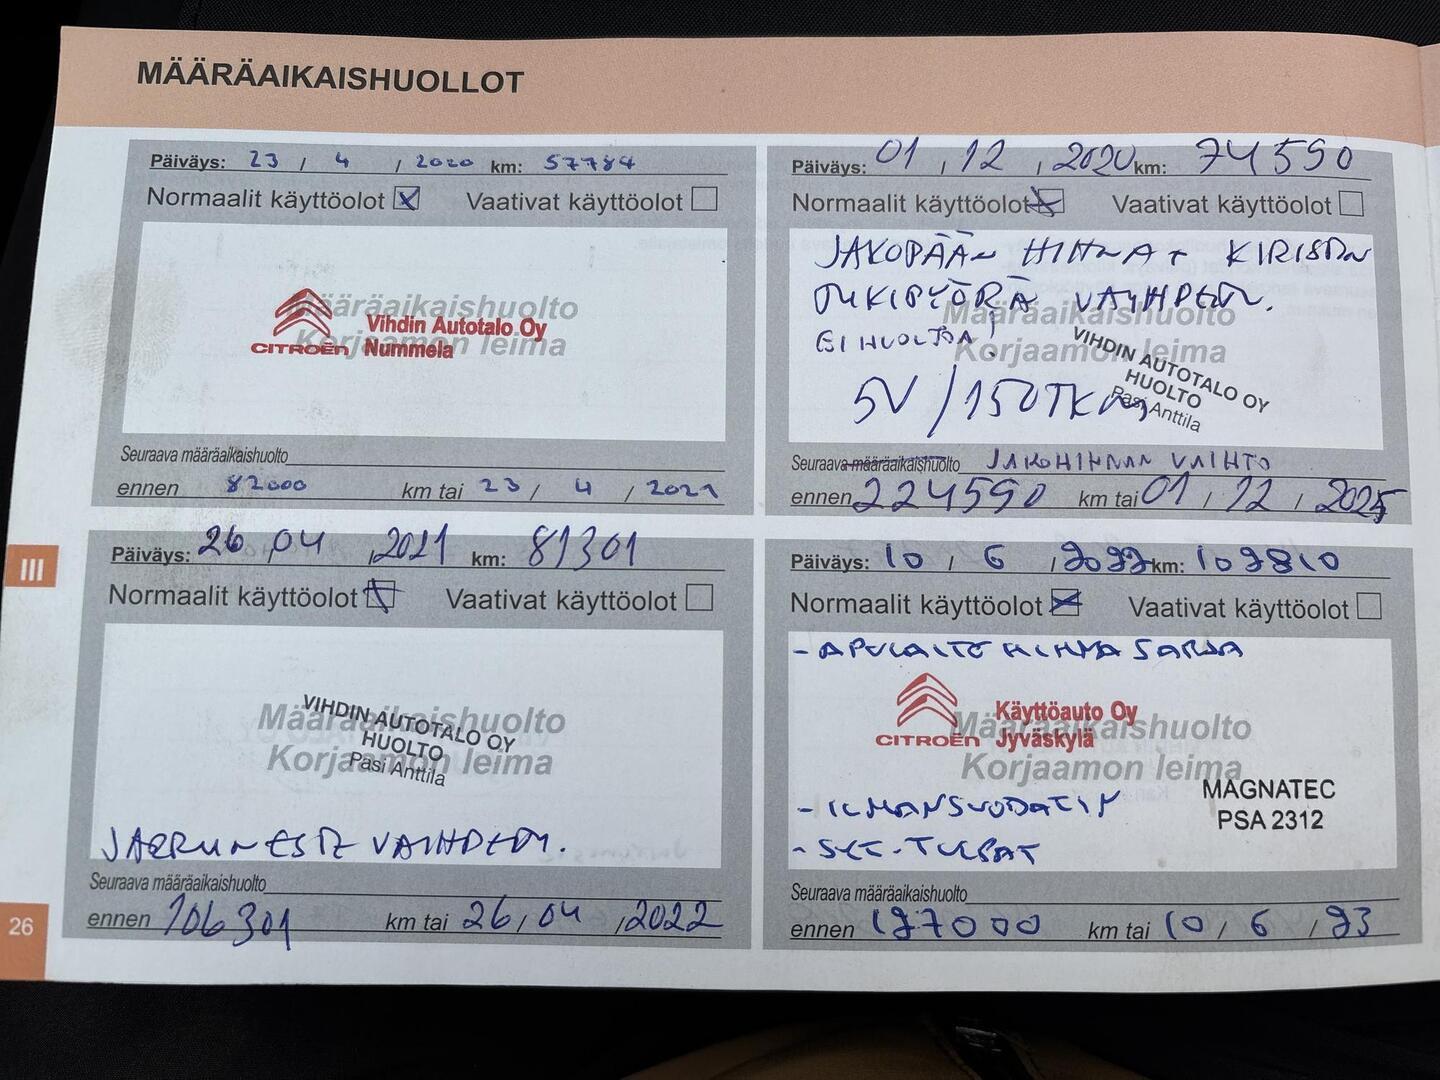 MÄÄRÄAIKAISHUOLLOT
Päiväys: 23 / 4 / 2020 km: 57784
Normaalit käyttöolot Vaativat käyttöolot
Määräaikaishuolto
Korjaamon leima
CITROËN Vihdin Autotalo Oy
Nummela
Seuraava määräaikaishuolto
ennen 82000 km tai 23 / 4 / 2021
Päiväys: 01 / 12 / 2020 km: 74590
Normaalit käyttöolot Vaativat käyttöolot
JAKOPÄÄN HIHNA + KIRISTIN
TUKIPYÖRÄ VAIHDETTU.
EI HUOLTOA!
Määräaikaishuolto
Korjaamon leima
VIHDIN AUTOTALO OY
HUOLTO
Pasi Anttila
5V / 150TKM
Seuraava määräaikaishuolto JAKOHIHNAN VAIHTO
ennen 224590 km tai 01 / 12 / 2025
III
Päiväys: 26 / 04 / 2021 km: 81301
Normaalit käyttöolot Vaativat käyttöolot
Määräaikaishuolto
Korjaamon leima
VIHDIN AUTOTALO OY
HUOLTO
Pasi Anttila
JARRUNESTE VAIHDETTU.
Seuraava määräaikaishuolto
ennen 106301 km tai 26 / 04 / 2022
Päiväys: 10 / 6 / 2022 km: 109810
Normaalit käyttöolot Vaativat käyttöolot
- APULAITEHIHNASARJA
Määräaikaishuolto
Korjaamon leima
CITROËN Käyttöauto Oy
Jyväskylä
MAGNATEC
PSA 2312
- ILMANSUODATIN
- SYT.TULPAT
Seuraava määräaikaishuolto
ennen 127000 km tai 10 / 6 / 23
26